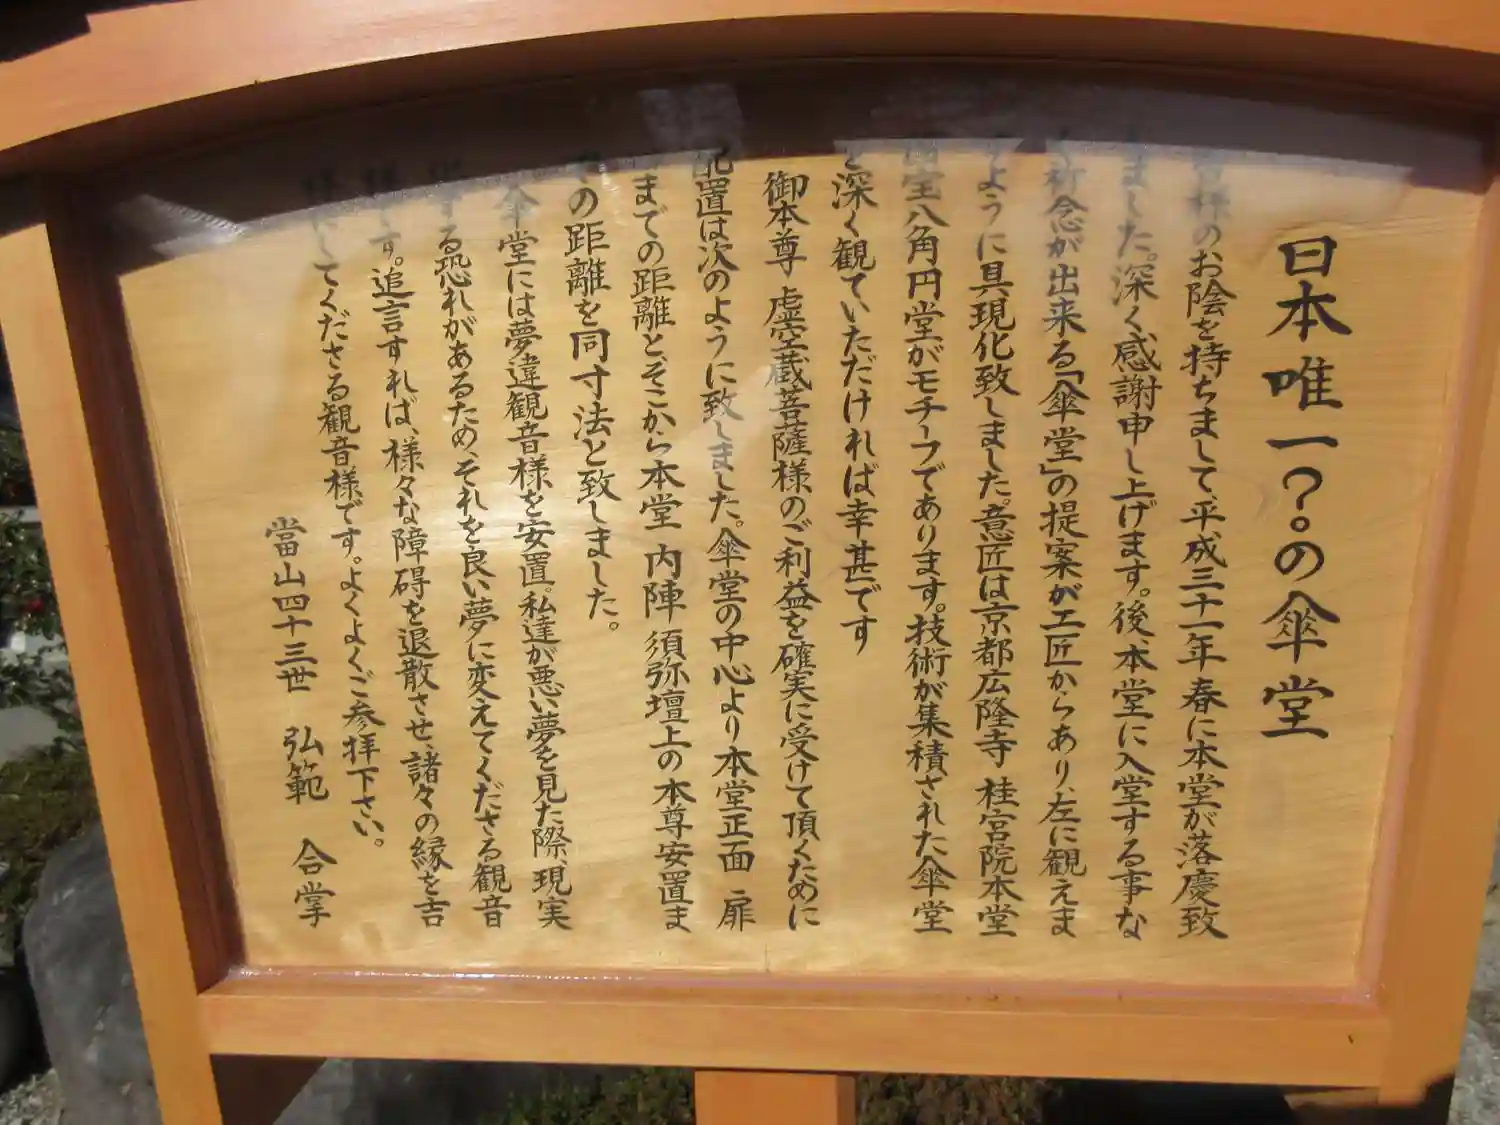 日本唯一?。の傘堂
皆様のお陰を持ちまして、平成三十一年春に本堂が落慶致
しました。深く感謝申し上げます。後、本堂に入堂する事な
く祈念が出来る「傘堂」の提案が工匠からあり、左に観えま
すように具現化致しました。意匠は京都広隆寺 桂宮院本堂
国宝八角円堂がモチーフであります。技術が集積された傘堂
を深く観ていただければ幸甚です
御本尊 虚空蔵菩薩様のご利益を確実に受けて頂くために
配置は次のように致しました。傘堂の中心より本堂正面 扉
までの距離と、そこから本堂 内陣 須弥壇上の本尊安置ま
での距離を同寸法と致しました。
傘堂には夢違観音様を安置。私達が悪い夢を見た際、現実
する恐れがあるため、それを良い夢に変えてくださる観音
様です。追言すれば、様々な障碍を退散させ、諸々の縁を吉
にしてくださる観音様です。よくよくご参拝下さい。
當山四十三世 弘範 合掌